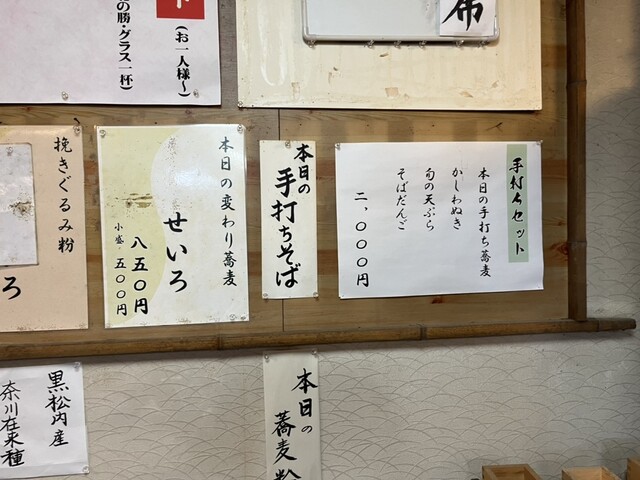 布
(お一人様〜)
の勝・グラス一杯)
手打ちセット
本日の手打ち蕎麦
かしわぬき
旬の天ぷら
そばだんご
二,〇〇〇円
本日の
手打ちそば
本日の変わり蕎麦
せいろ
八五〇円
小盛・五〇〇円
挽きぐるみ粉
ろ
本日の
蕎麦粉
黒松内産
奈川在来種